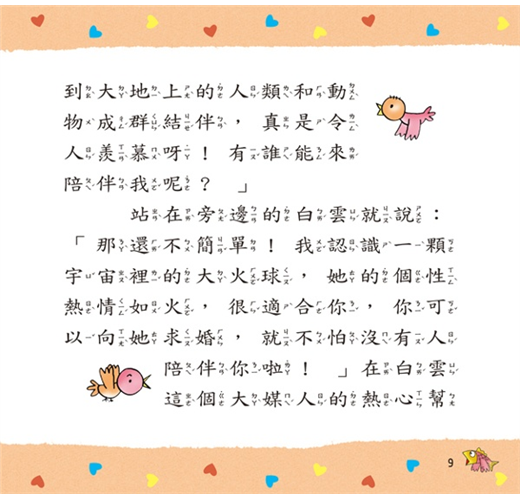 到大地上的人類和動
物成群結伴，真是令
人羨慕呀！有誰能來
陪伴我呢？」
站在旁邊的白雲就說：
「那還不簡單！我認識一顆
宇宙裡的大火球，她的個性
熱情如火，很適合你，你可
以向她求婚，就不怕沒有人
陪伴你啦！」在白雲
這個大媒人的熱心幫
9